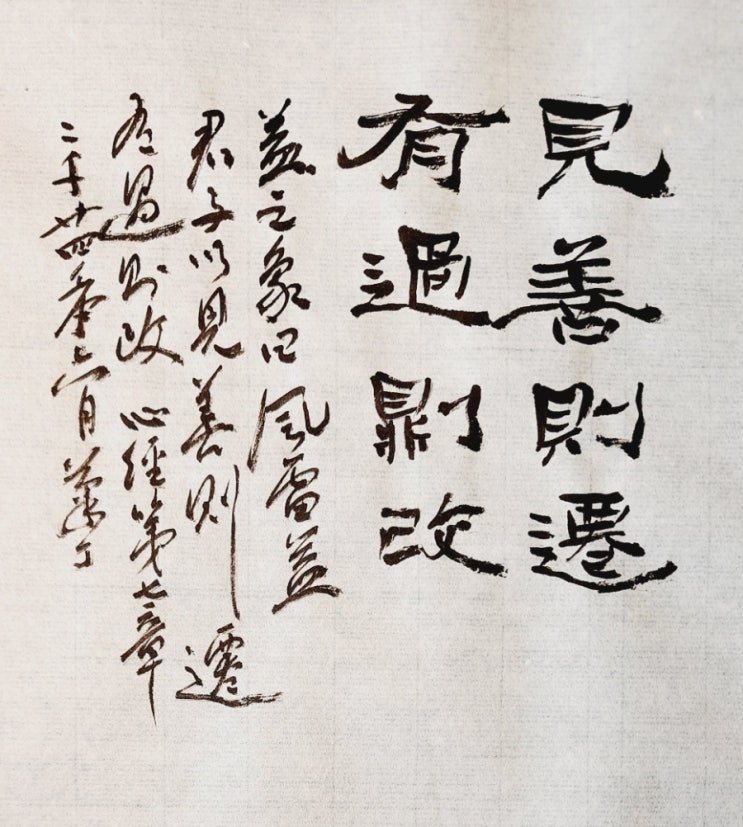 見善則遷
有過則改
益之象曰風雷益
君子以見善則遷
有過則改心經第七章
二千廿四年六月